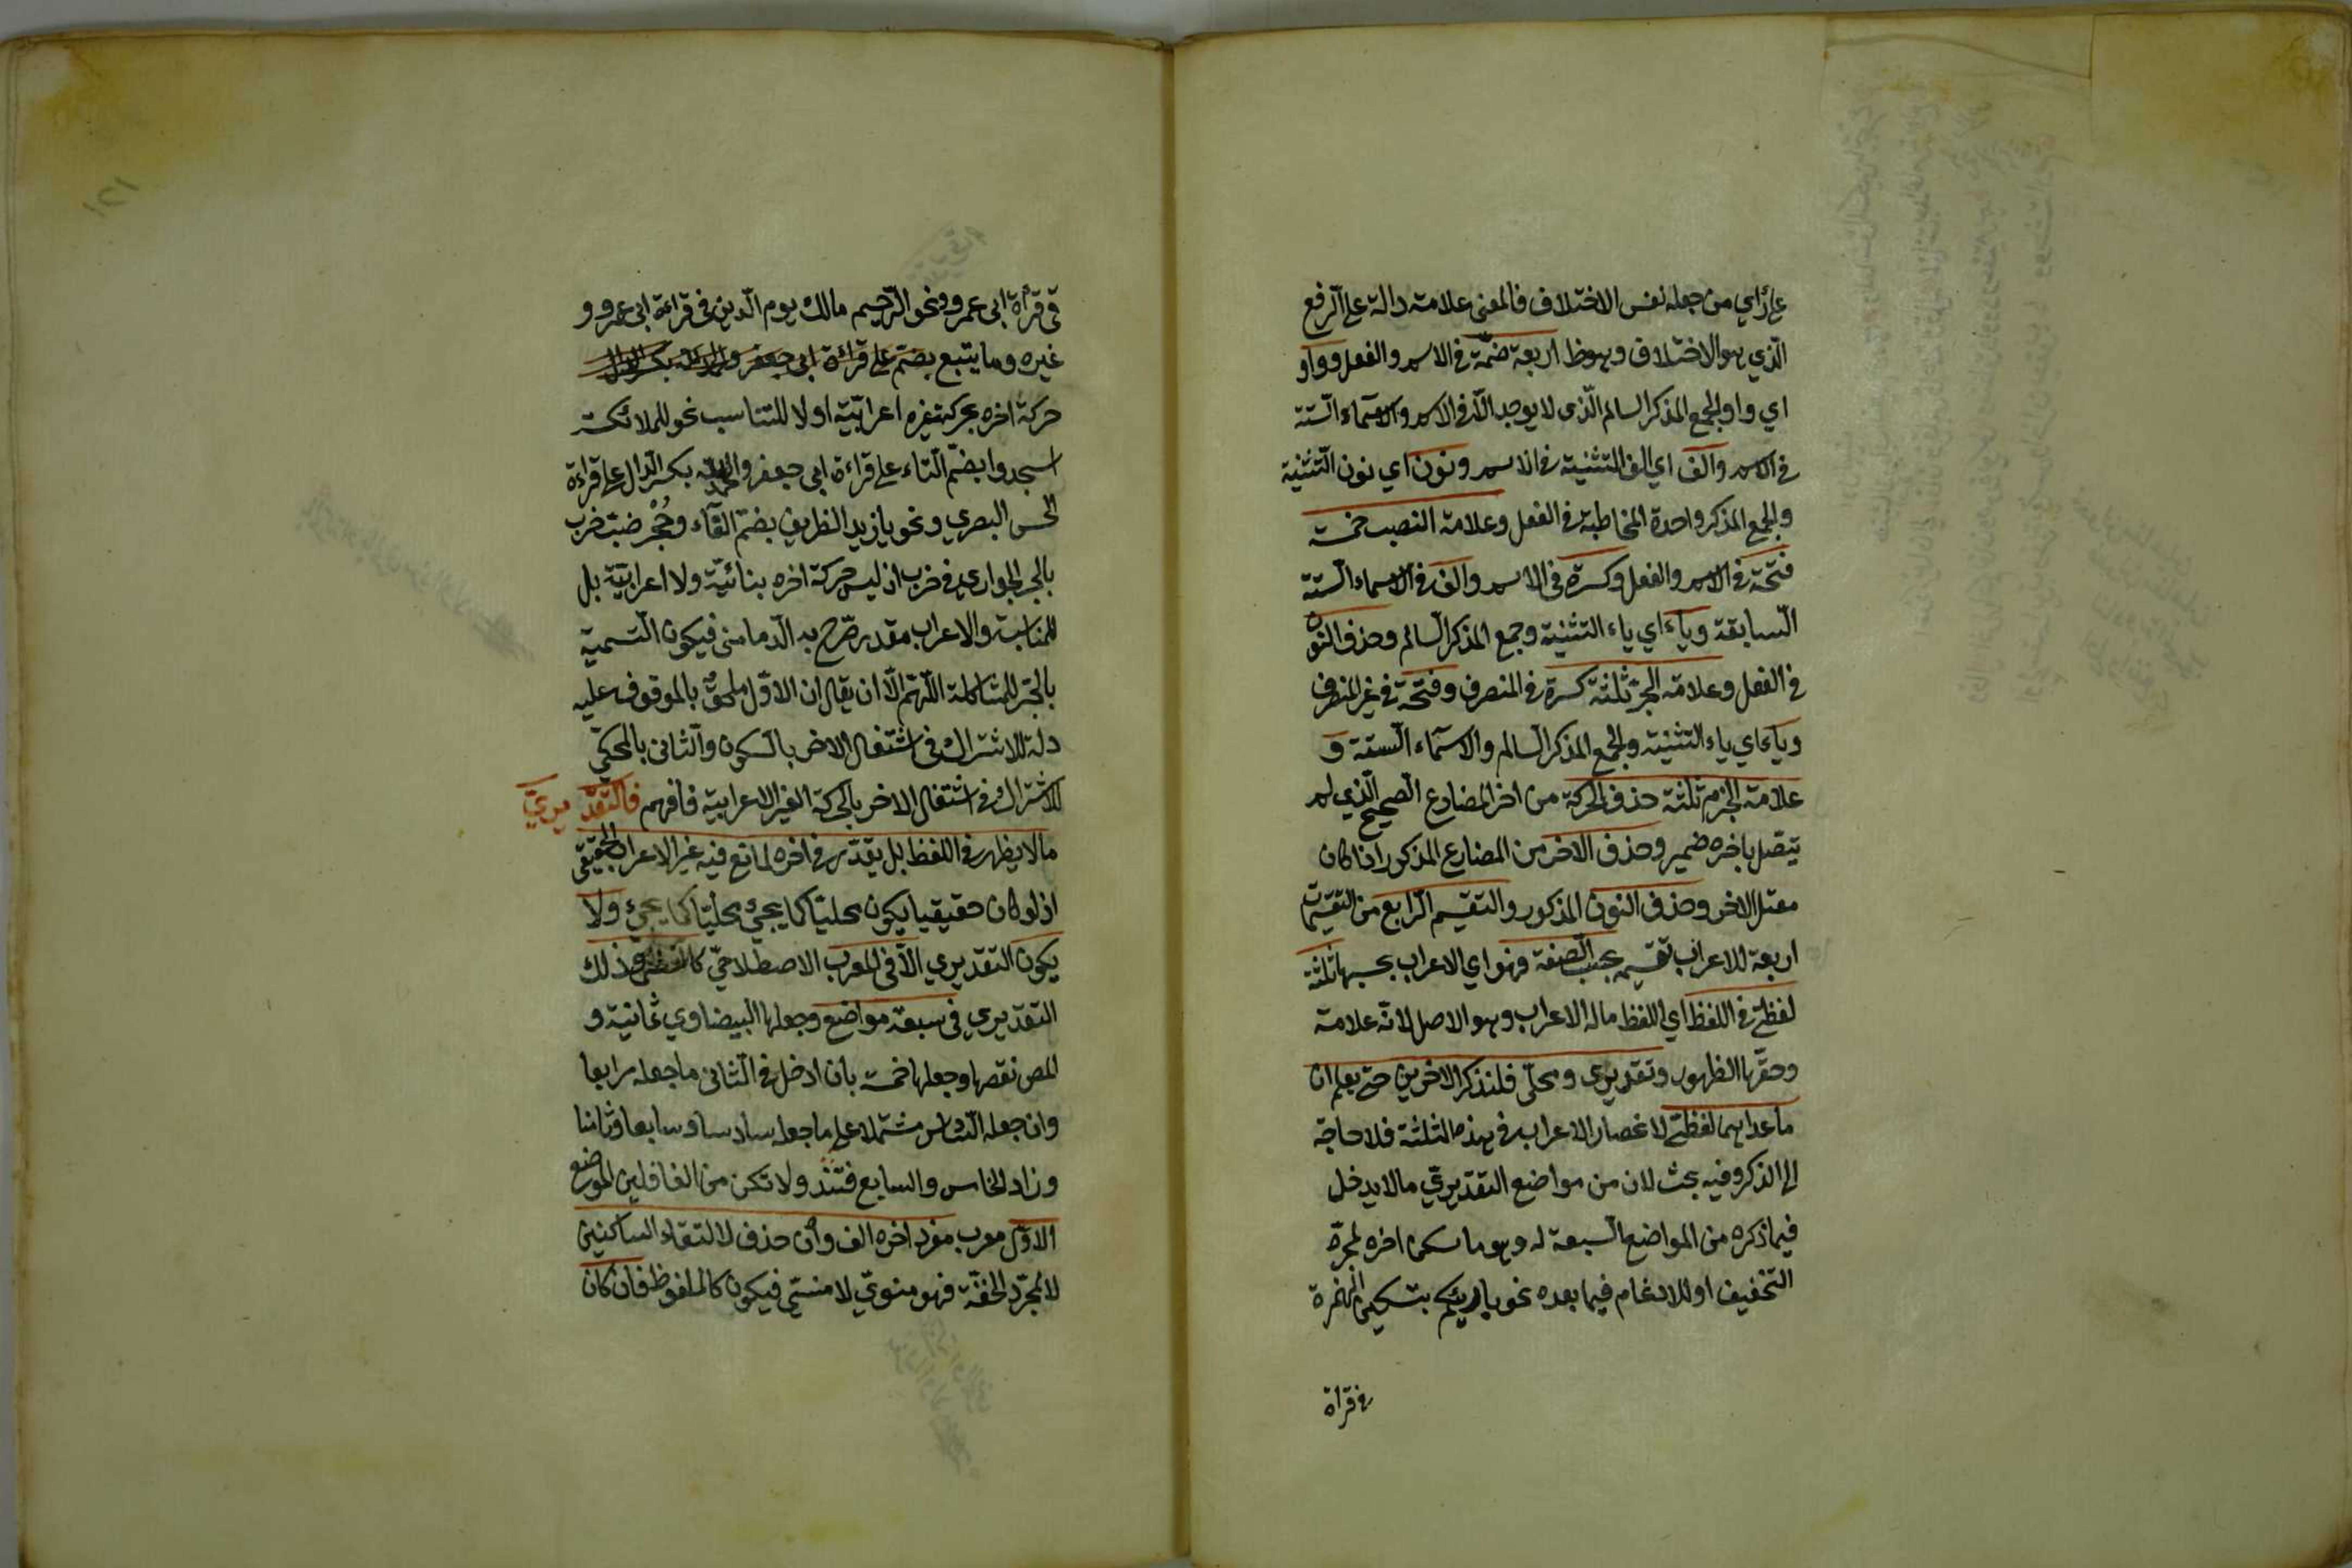 على رأي من جعله نفس الاختلاف فالمعنى علامة دالة على الرفع
الذي هو الاختلاف وهو ظ اربعة ضمة في الاسم والفعل وواو
اي واو الجمع المذكر السالم الذي لا يوجد الا في الاسم والاسماء الستة
في الاسم والف اي الف التثنية في الاسم ونون اي نون التثنية
والجمع المذكر واحدة المخاطبة في الفعل وعلامة النصب خمسة
فتحة في الاسم والفعل وكسرة في الاسم والف في الاسماء الستة
السابقة وياء اي ياء التثنية وجمع المذكر السالم وحذف النون
في الفعل وعلامة الجر ثلثة كسرة في المنصرف وفتحة في غير المنصرف
وياء اي ياء التثنية والجمع المذكر السالم والاسماء الستة و
علامة الجزم ثلثة حذف الحركة من اخر المضارع الصحيح الذي لم
يتصل باخره ضمير وحذف الاخر من المضارع المذكور اذا كان
معتل الاخر وحذف النون المذكور والتقسيم الرابع من التقسيمات
اربعة للاعراب تقسيمه بحسب الصفة وهو اي الاعراب بحسبها ثلثة
لفظي في اللفظ اي اللفظ ماله الاعراب وهو الاصل لانه علامة
وحقها الظهور وتقديري ومحلي فلنذكر الاخرين حتى يعلم ان
ما عداهما لفظي لانحصار الاعراب في هذه الثلثة فلا حاجة
الى الذكر وفيه بحث لان من مواضع التقديري ما لا يدخل
فيما ذكره من المواضع السبعة له وهو ما سكن اخره لمجرد
التخفيف او للادغام فيما بعده نحو بارئكم بتسكين الهمزة
في قراة
في قرأة ابى عمرو ونحو الرحيم مالك يوم الدين في قراءة ابى عمرو و
غيره وما يتبع بضم على قرائة ابى جعفر
حركة اخره بحركة غيره اعرابية اولا للتناسب نحو للملائكة
اسجدوا بضم التاء على قراءة ابى جعفر والحمد لله بكسر الدال على قراءة
الحسن البصري ونحو يا زيد الظريف بضم الفاء وجحر ضب خرب
بالجر الجواري في خرب اذ ليس حركة اخره بنائية ولا اعرابية بل
للمناسبة والاعراب مقدر صرح به الدمامنى فيكون التسمية
بالجر للمشاكلة اللهم الا ان يقال ان الاول ملحق بالموقوف عليه
دلة للاشتراك في اشتغال الاخر بالسكون والثانى بالمحكي
للاشتراك في اشتغال الاخر بالحركة الغير الاعرابية فافهم فالتقديري
ما لا يظهر في اللفظ بل يقدر في اخره لمانع فيه غير الاعراب الحقيقى
اذ لو كان حقيقيا يكون محليا كما يجئ محليا كما يجئ ولا
يكون التقديري الا في المعرب الاصطلاحي كاللفظي وذلك
التقديري في سبعة مواضع وجعلها البيضاوي ثمانية و
المص نقصها وجعلها خمسة بان ادخل في الثانى ما جعله رابعا
وان جعله السادس مشتملا على ما جعله سادسا وسابعا وثامنا
وزاد الخامس والسابع ولا تكن من الغافلين الموضع
الاول معرب مفرد اخره الف وان حذف لالتقاء الساكنين
لا لمجرد الخفة فهو منوي لا منسي فيكون كالملفوظ فان كان